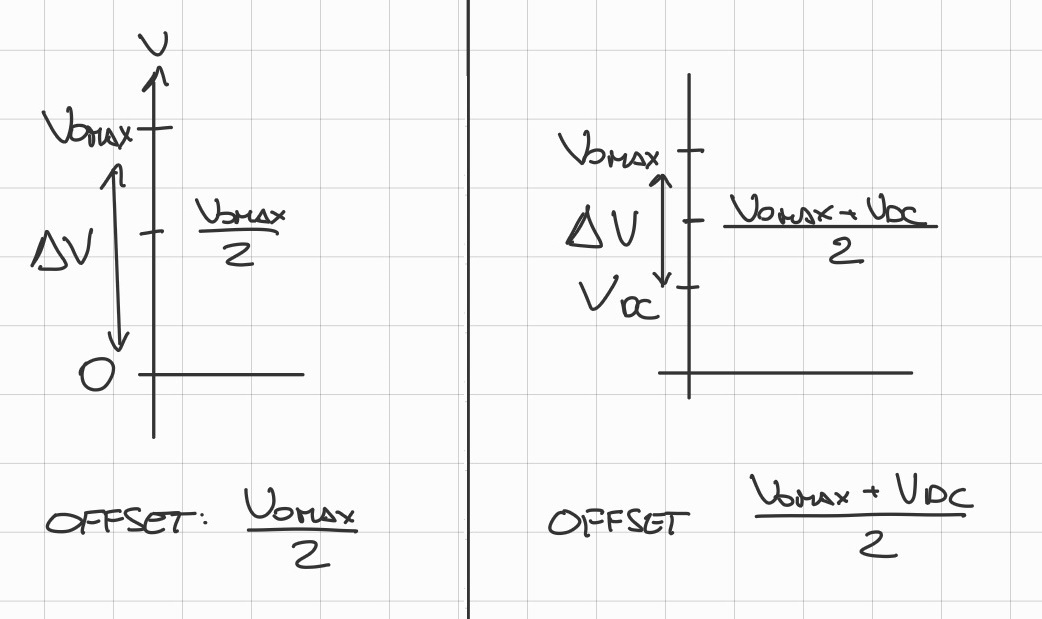 V
VOMAX
VOMAX
2
ΔV
O
OFFSET: VOMAX
2
VOMAX
VOMAX + VDC
2
ΔV
VDC
OFFSET VOMAX + VDC
2